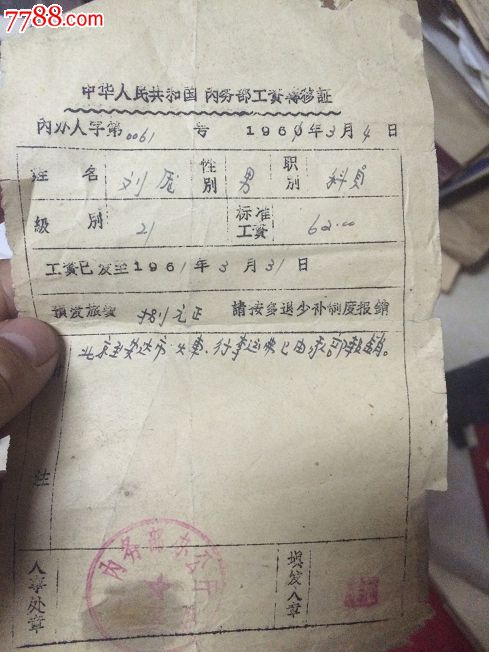 7788.com
中华人民共和国 內务部工資轉移証
內办人字第0061号 1961年3月4日
姓名 刘 性別 男 职別 科员
級別 21 标准工資 62.00
工資已发至1961年3月31日
預发旅費 元正 請按多退少补制度报銷
北京至 市火車、行李运费已由我部報銷。
註
人事处章 內务部办公厅 填发人章